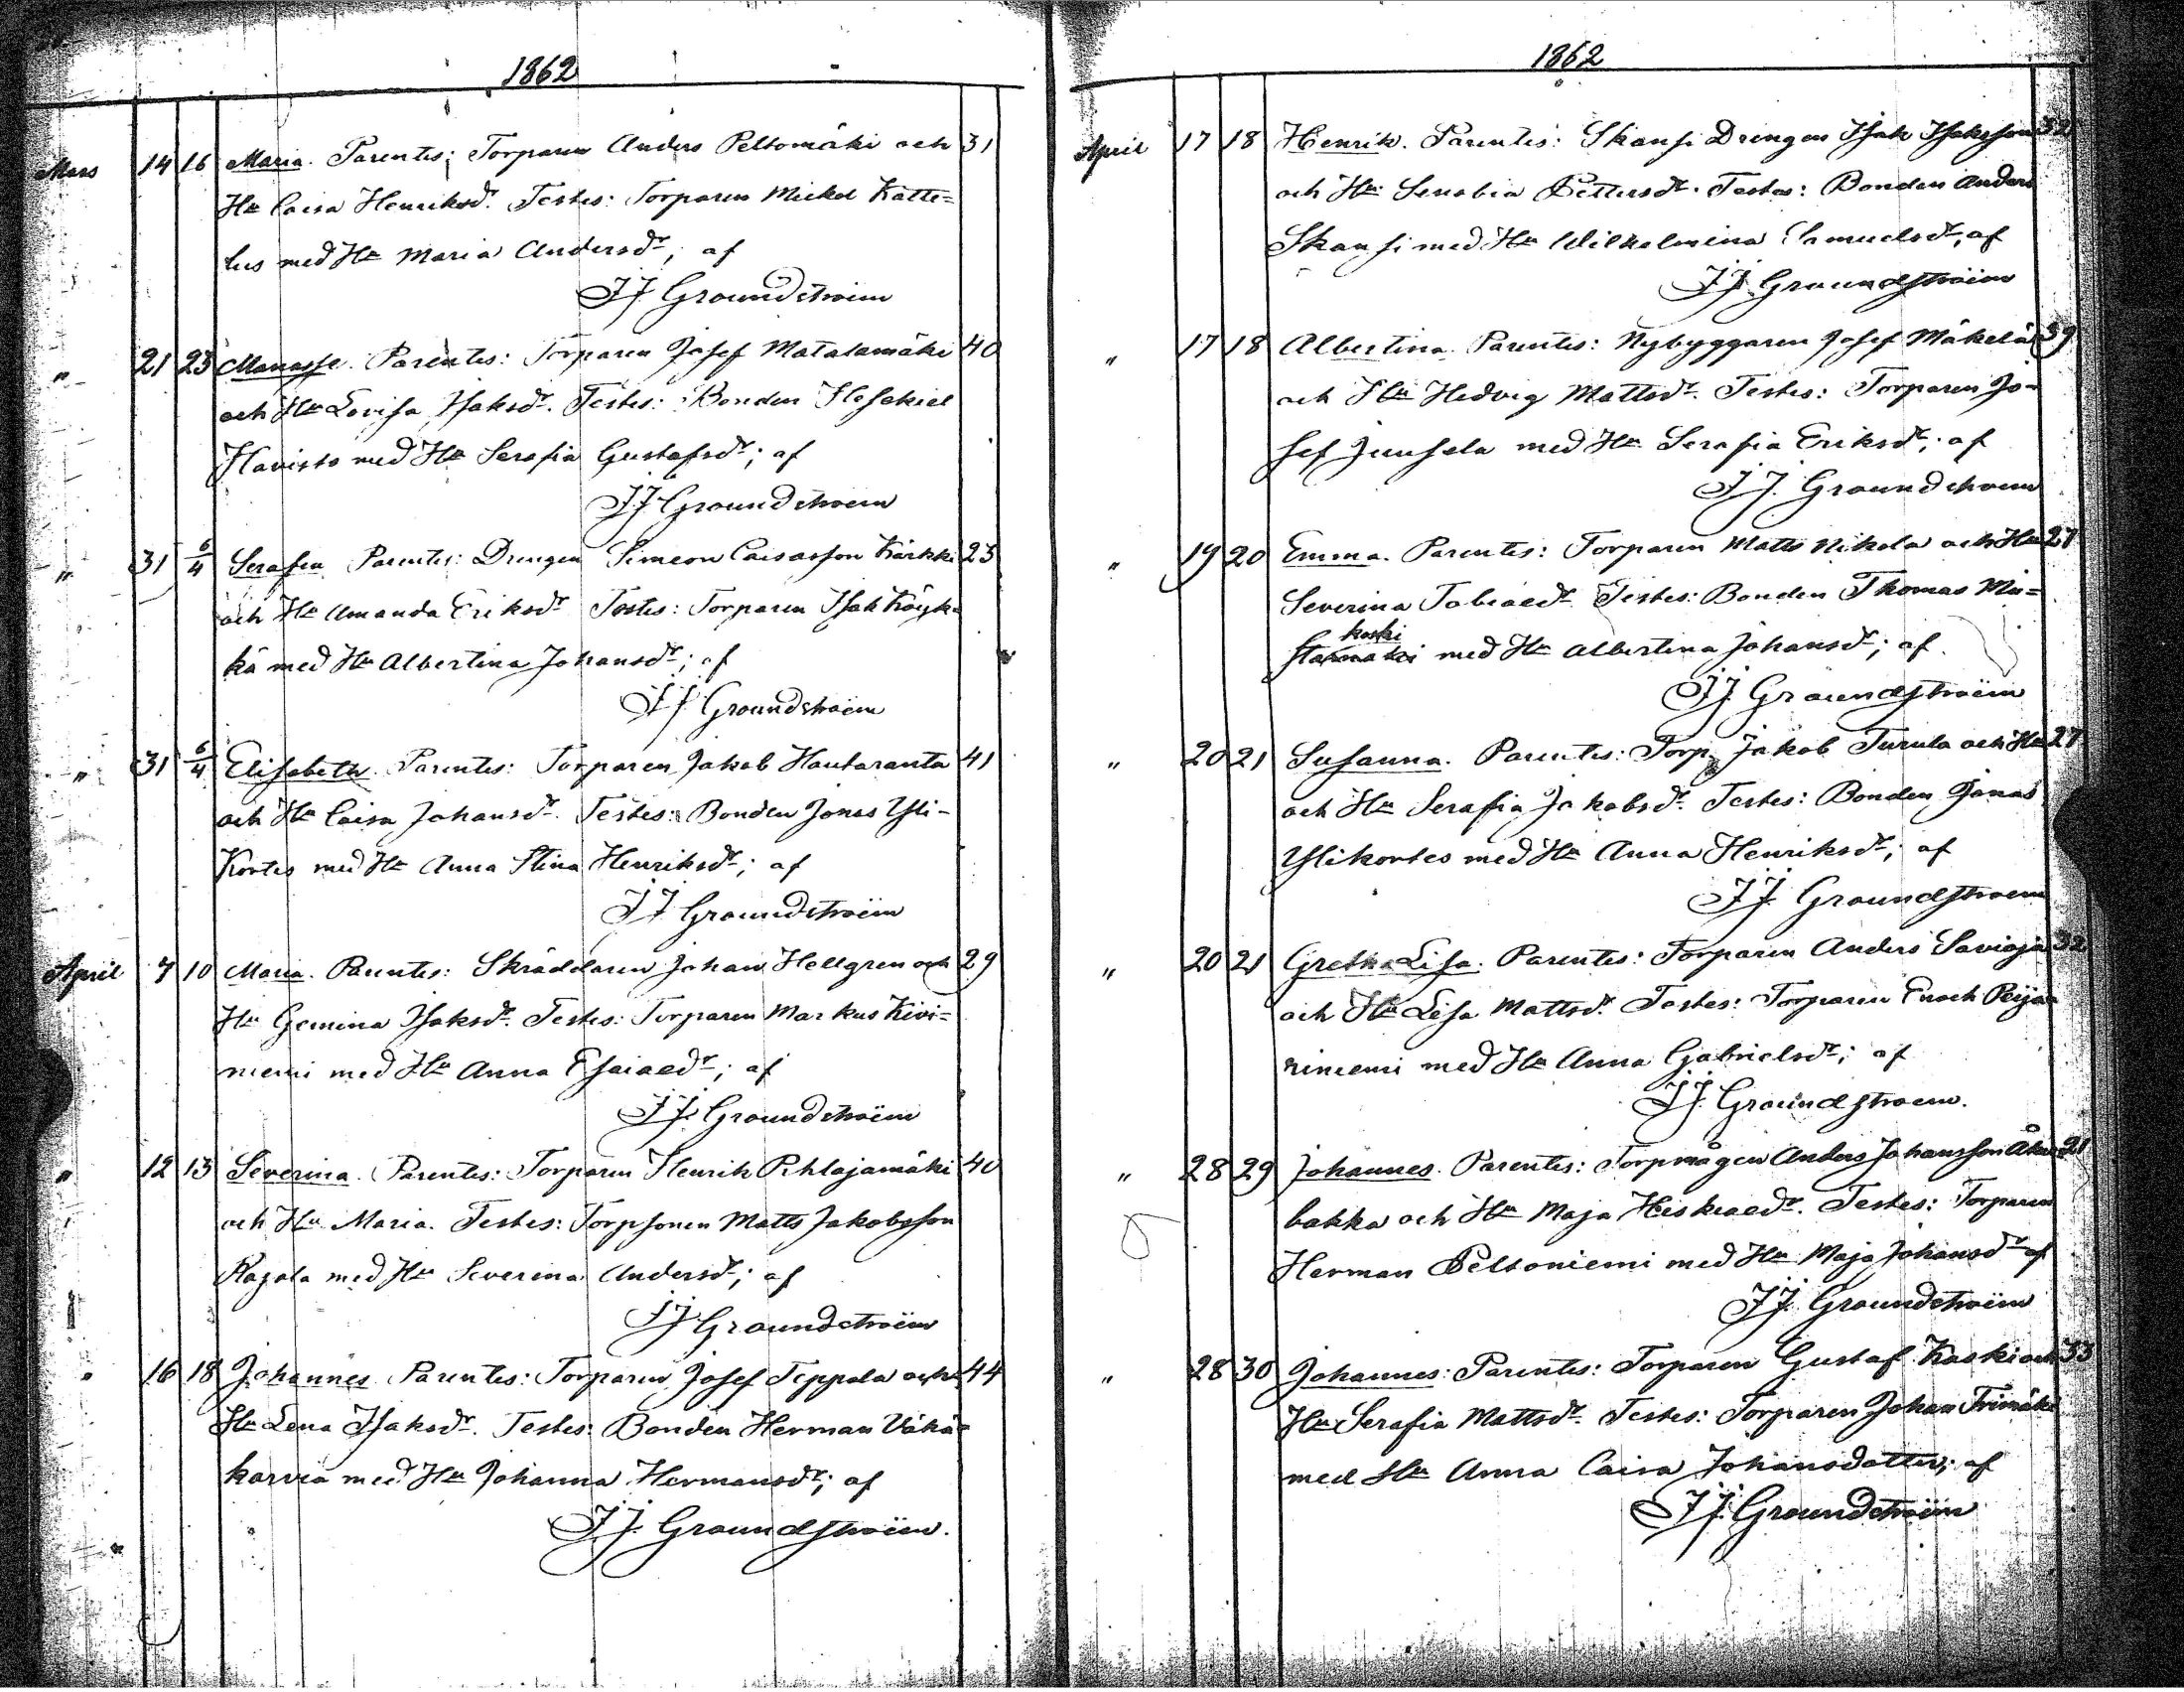 1862
Mars 14 16 Maria. Parentes: Torparen Anders Peltomäki och 31
Hu Caisa Henriksdr. Testes: Torparen Mickel Kätte=
lus med Hu Maria Andersdr; af
JJ Groundstroëm
" 21 23 Manasse. Parentes: Torparen Josef Matalamäki 40
och Hu Lovisa Isaksdr. Testes: Bonden Hesekiel
Havisto med Hu Serafia Gustafsdr; af
JJ Groundstroëm
" 31 6/4 Serafia Parentes: Drengen Simeon Caisasson Kärkki 23
och Hu Amanda Eriksdr Testes: Torparen Isak Köyk
kä med Hu Albertina Johansdr; af
JJ Groundstroëm
" 31 6/4 Elisabeth. Parentes: Torparen Jakob Hautaranta 41
och Hu Caisa Johansdr. Testes: Bonden Jonas Yli-
Kortes med Hu Anna Stina Henriksdr; af
JJ Groundstroëm
April 7 10 Maria. Parentes: Skräddaren Johan Hellgren och 29
Hu Gemina Isaksdr. Testes: Torparen Markus Kivi=
niemi med Hu Anna Esaiaedr; af
JJ Groundstroëm
" 12 13 Severina. Parentes: Torparen Henrik Pihlajamäki 40
och Hu Maria. Testes: Torpsonen Matts Jakobsson
Rajala med Hu Severina Andersdr; af
JJ Groundstroëm
" 16 18 Johannes Parentes: Torparen Josef Teppola och 44
Hu Lena Isaksdr. Testes: Bonden Herman Väkä=
karvia med Hu Johanna Hermansdr; af
JJ Groundstroëm.
1862
April 17 18 Henrik. Parentes: Skansi Drengen Isak Isaksson 32
och Hu Senobia Pettersdr. Testes: Bonden Anders
Skansi med Hu Wilhelmina Samuelsdr; af
JJ Groundstroëm
" 17 18 Albertina. Parentes: Nybyggaren Josef Mäkelä 39
och Hu Hedvig Mattsdr. Testes: Torparen Jo-
sef Juusela med Hu Serafia Eriksdr; af
JJ. Groundstroem
" 19 20 Emma. Parentes: Torparen Matts Nikola och Hu 27
Severina Tobiaedr Testes: Bonden Thomas Mu=
koski
sta med Hu Albertina Johansdr; af
JJ Groundstroëm
" 20 21 Susanna. Parentes: Torp. Jakob Turula och Hu 27
och Hu Serafia Jakobsdr. Testes: Bonden Jonas
Ylikortes med Hu Anna Henriksdr; af
JJ Groundstroem
" 20 21 Greta Lisa. Parentes: Torparen Anders Savioja 32
och Hu Lisa Mattsdr. Testes: Torparen Enoch Peija=
riniemi med Hu Anna Gabrielsdr; af
JJ Groundstroem.
" 28 29 Johannes. Parentes: Torpmågen Anders Johansson Åker 21
backa och Hu Maja Heskiaedr. Testes: Torparen
Herman Peltoniemi med Hu Maja Johansdr af
JJ Groundstroëm
" 28 30 Johannes: Parentes: Torparen Gustaf Koski och 33
Hu Serafia Mattsdr. Testes: Torparen Johan
med Hu Anna Caisa Johansdotter; af
JJ Groundstroëm